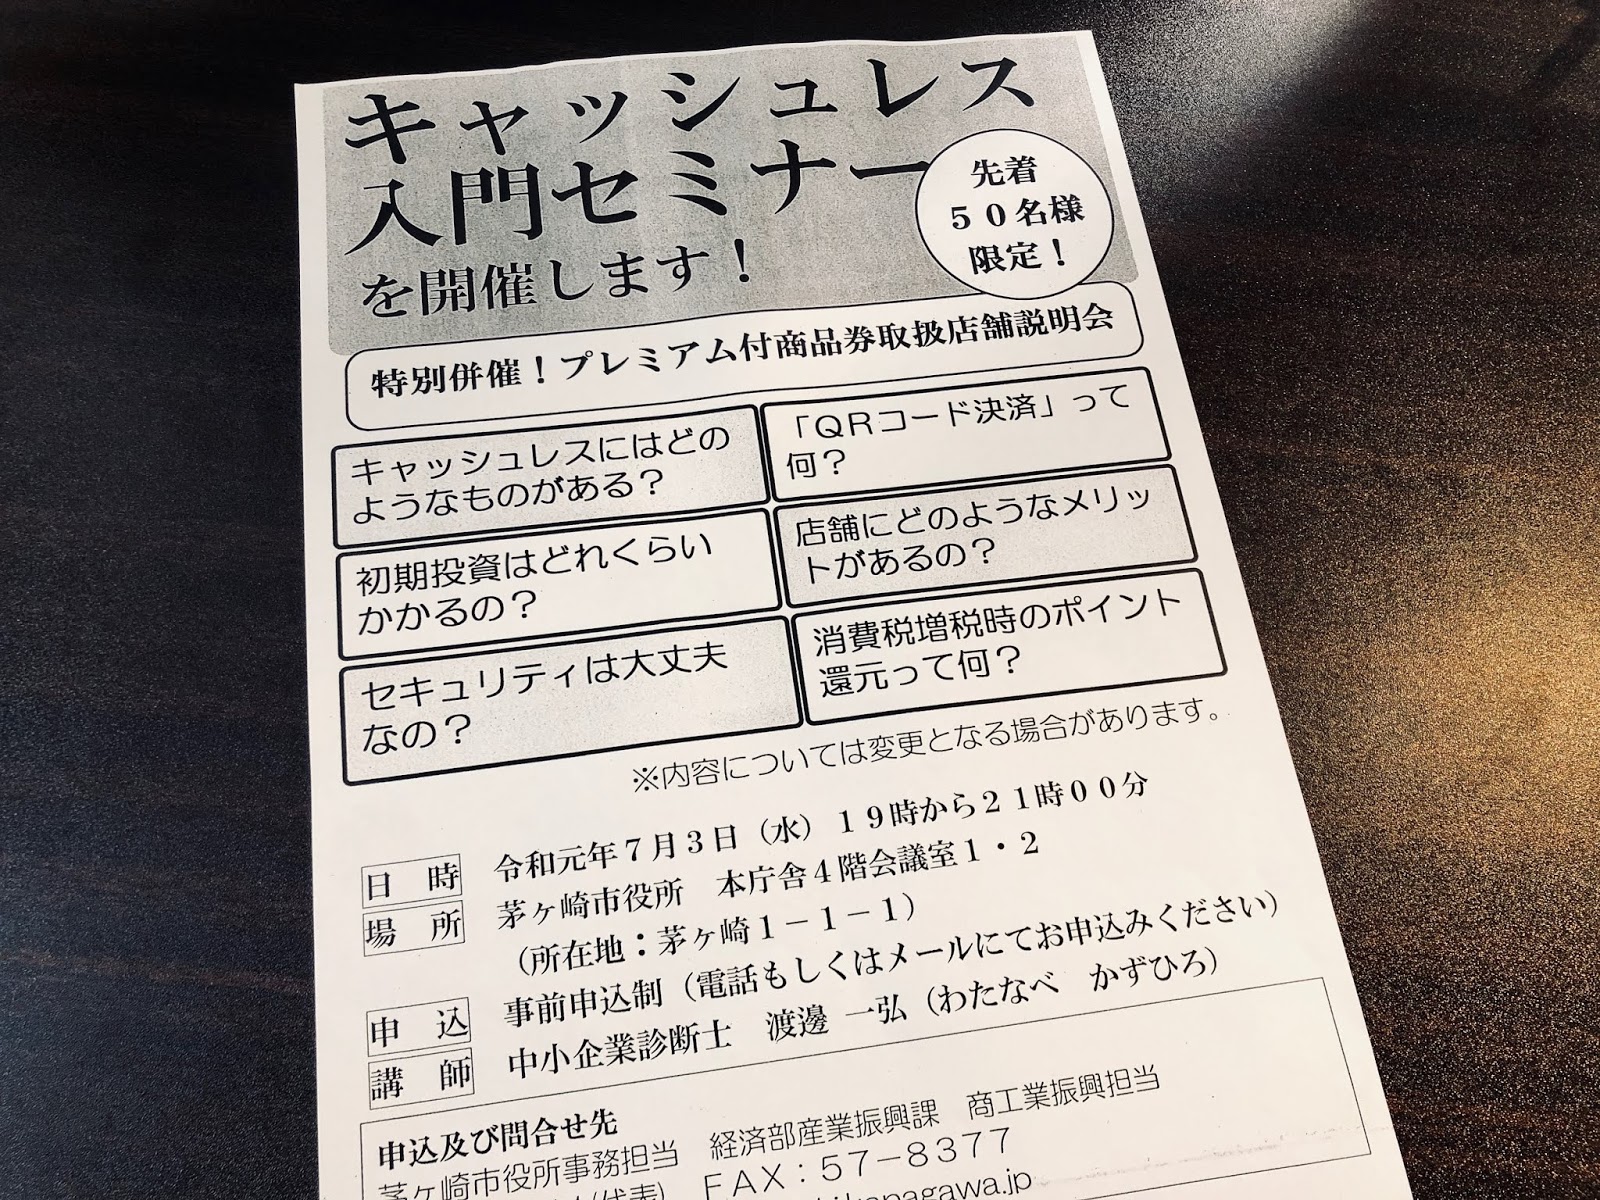 キャッシュレス
入門セミナー
を開催します！
先着
５０名様
限定！
特別併催！プレミアム付商品券取扱店舗説明会
キャッシュレスにはどの
ようなものがある？
「ＱＲコード決済」って
何？
初期投資はどれくらい
かかるの？
店舗にどのようなメリッ
トがあるの？
セキュリティは大丈夫
なの？
消費税増税時のポイント
還元って何？
※内容については変更となる場合があります。
日　時　令和元年７月３日（水）１９時から２１時００分
場　所　茅ヶ崎市役所　本庁舎４階会議室１・２
（所在地：茅ヶ崎１－１－１）
申　込　事前申込制（電話もしくはメールにてお申込みください）
講　師　中小企業診断士　渡邊 一弘（わたなべ　かずひろ）
申込及び問合せ先
茅ヶ崎市役所事務担当　経済部産業振興課　商工業振興担当
(代表)　ＦＡＸ：５７－８３７７
kanagawa.jp